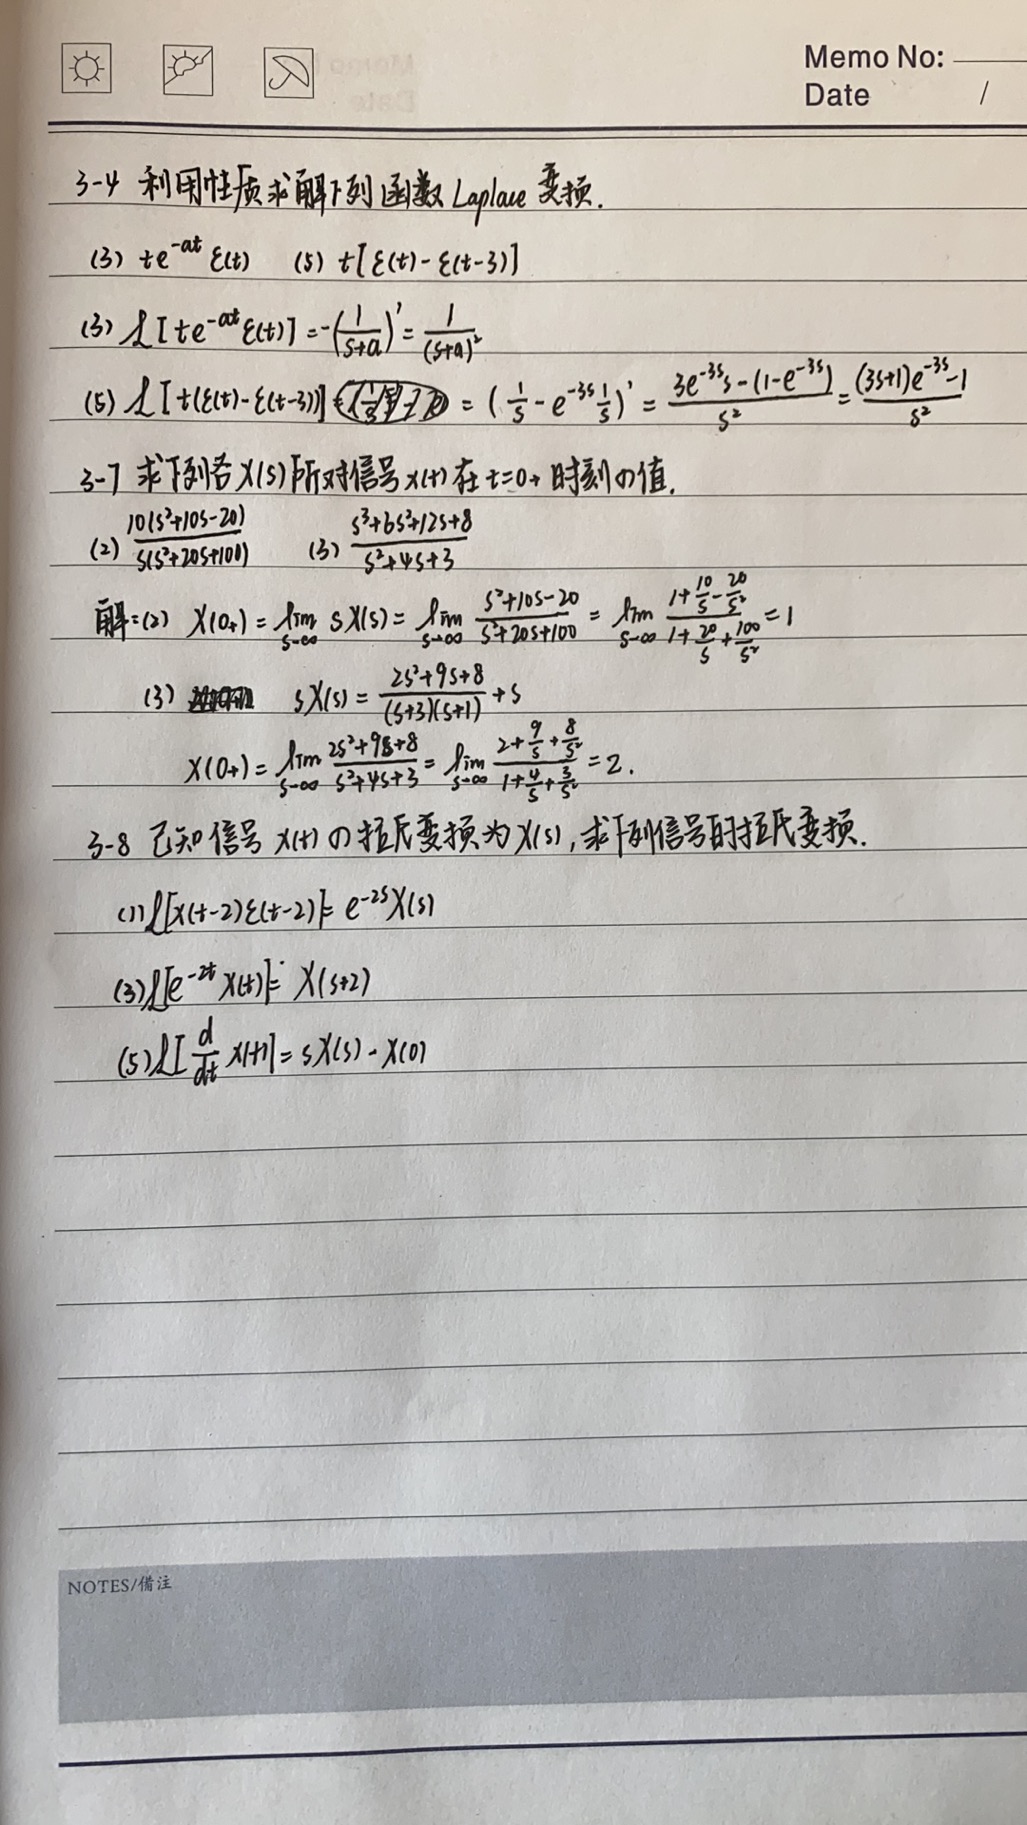 Memo No:
Date /
3-4 利用性质求解下列函数 Laplace 变换.
(3) te^{-at} ε(t) (5) t[ε(t)-ε(t-3)]
(3) ℒ[te^{-at}ε(t)] = -(1/(s+a))' = 1/(s+a)²
(5) ℒ[t(ε(t)-ε(t-3))] = (1/s - e^{-3s} 1/s)' = (3e^{-3s}s-(1-e^{-3s}))/s² = ((3s+1)e^{-3s}-1)/s²
3-7 求下列各X(s)所对信号x(t)在t=0₊时刻の值.
(2) 10(s²+10s-20)/(s(s²+20s+100)) (3) (s³+6s²+12s+8)/(s²+4s+3)
解:(2) X(0₊) = lim_{s→∞} sX(s) = lim_{s→∞} (s²+10s-20)/(s²+20s+100) = lim_{s→∞} (1+10/s-20/s²)/(1+20/s+100/s²) = 1
(3) sX(s) = (2s²+9s+8)/((s+3)(s+1)) + s
X(0₊) = lim_{s→∞} (2s²+9s+8)/(s²+4s+3) = lim_{s→∞} (2+9/s+8/s²)/(1+4/s+3/s²) = 2.
3-8 已知信号 x(t) の拉氏变换为X(s),求下列信号的拉氏变换.
(1) ℒ[x(t-2)ε(t-2)] = e^{-2s}X(s)
(3) ℒ[e^{-2t} x(t)] = X(s+2)
(5) ℒ[d/dt x(t)] = sX(s) - X(0)
NOTES/備注